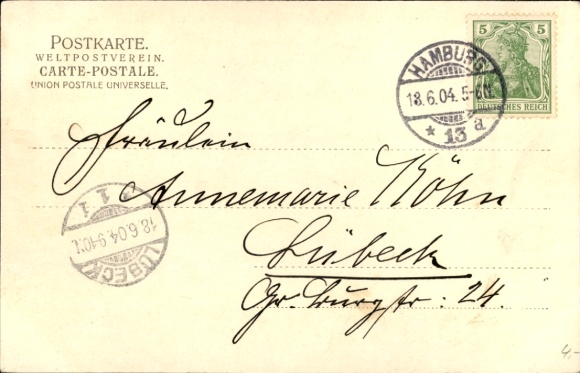 POSTKARTE.
WELTPOSTVEREIN.
CARTE-POSTALE.
UNION POSTALE UNIVERSELLE.
5 5
DEUTSCHES REICH
HAMBURG
18.6.04. 5-6N.
* 13 a
Fräulein
Annemarie Köhn
Lübeck
Gr. Burgstr: 24.
LÜBECK
18.6.04. 9-10N.
1 1
4,-